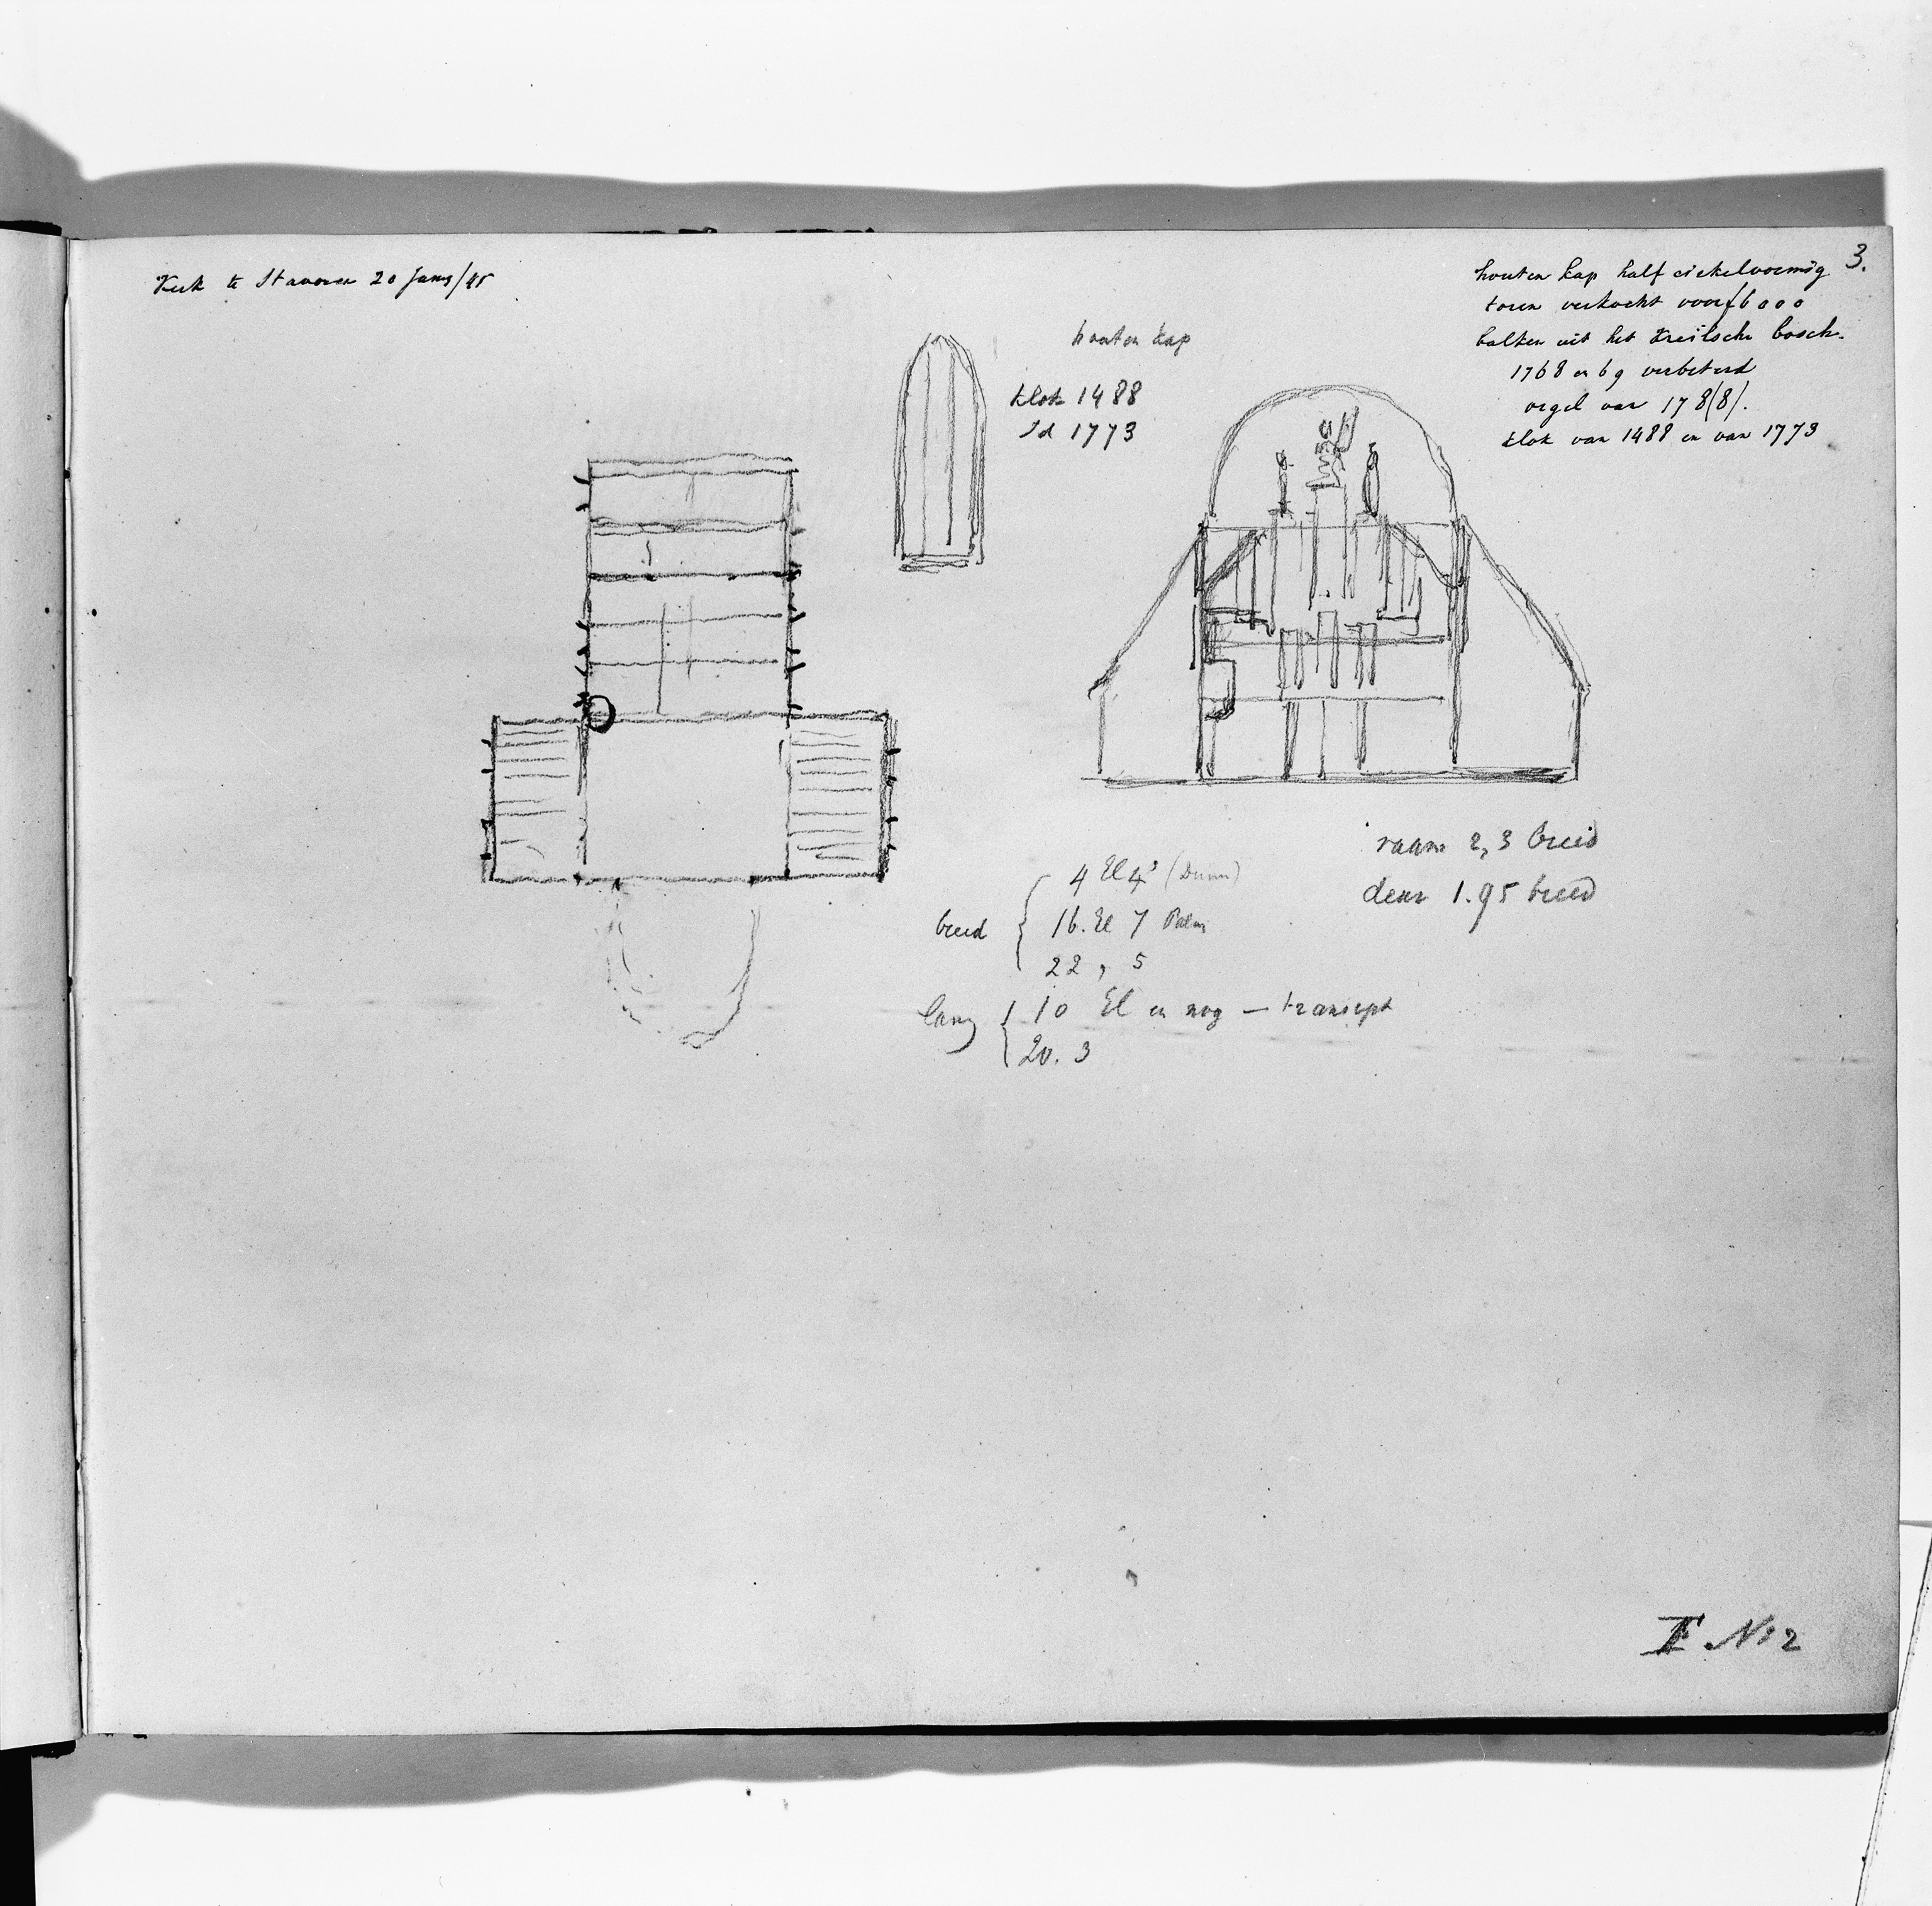 Kerk te Stavoren 20 Jany/45
3.
houten kap half cirkelvormig
toren verkocht voor f 6000
balken uit het Kreilsche bosch.
1768 en 69 verbeterd
orgel van 178(8).
klok van 1488 en van 1773
houten kap
klok 1488
Id 1773
raam 2,3 breed
deur 1.95 breed
breed
4 El 4² (Duim)
16. El 7 Palm
22, 5
lang
10 El en nog — transept
20. 3
F No 2